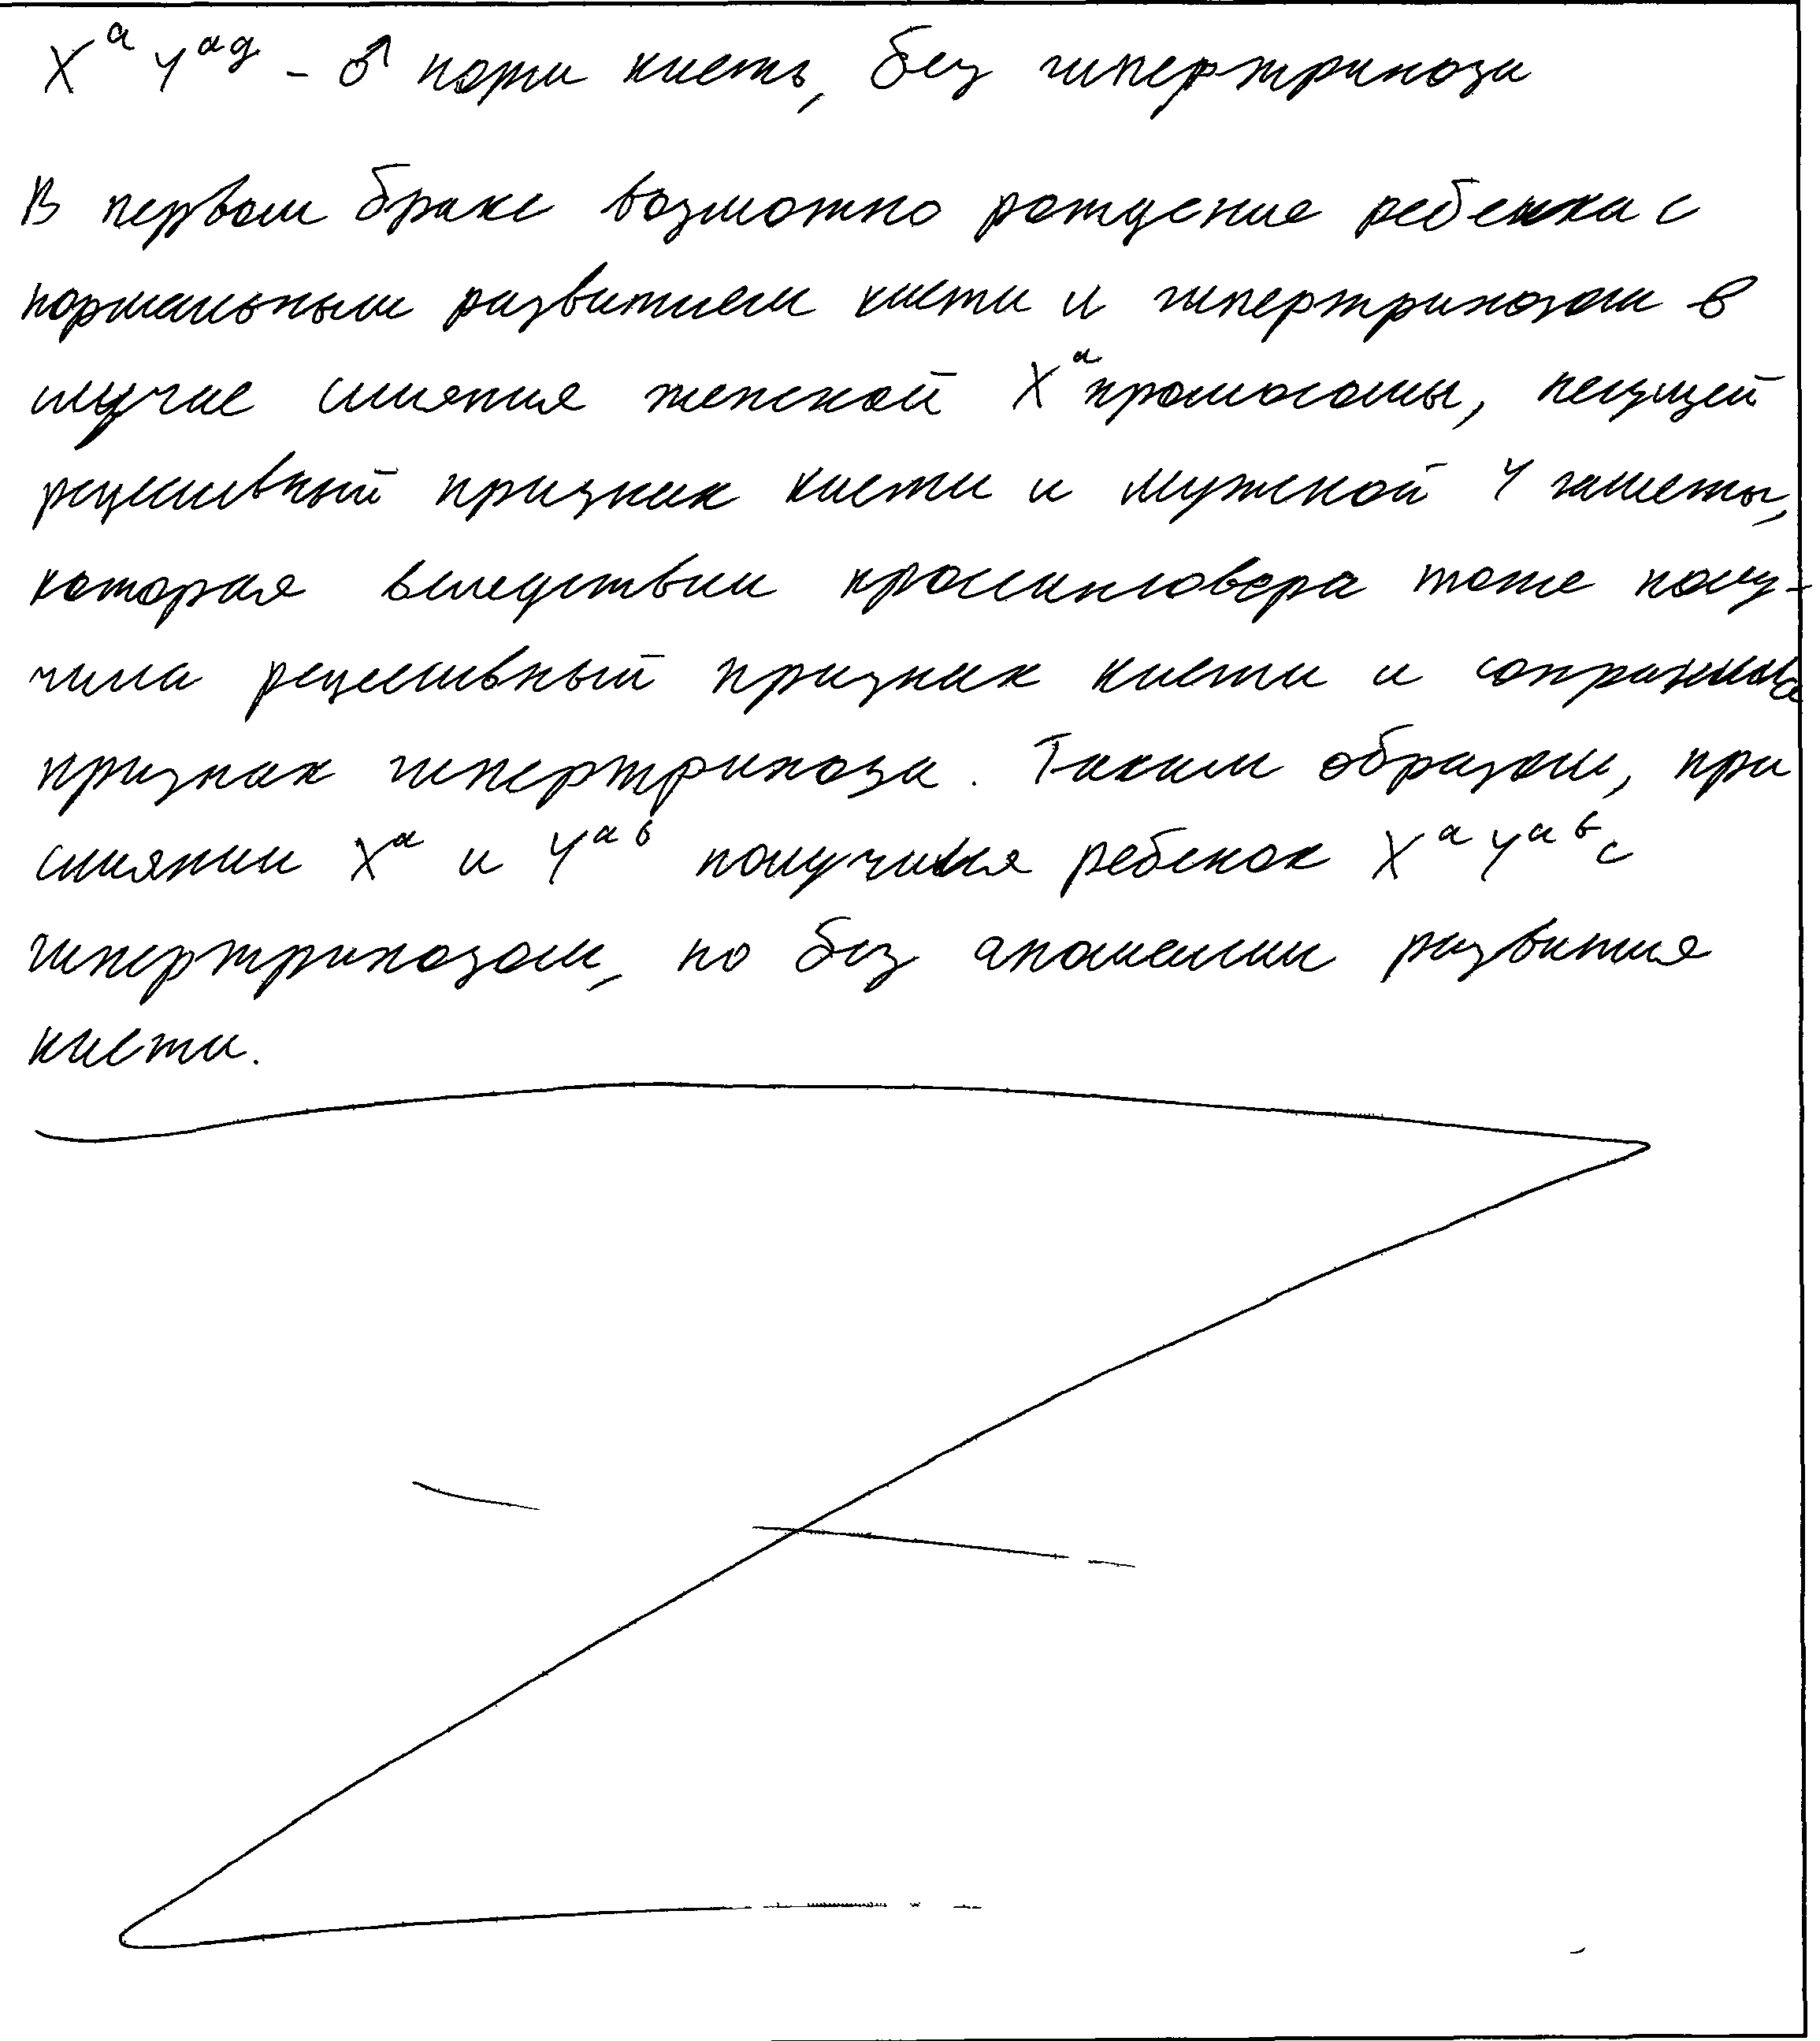 Xᵃ Yᵃᵍ - ♂ норм кисть, без гипертрихоза
В первом браке возможно рождение ребенка с
нормальным развитием кисти и гипертрихозом в
случае слияния женской Xᵃ хромосомы, несущей
рецессивный признак кисти и мужской Y гаметы,
которая вследствии кроссинговера тоже полу-
чила рецессивный признак кисти и сохранила
признак гипертрихоза. Таким образом, при
слиянии Xᵃ и Yᵃᵇ получился ребенок XᵃYᵃᵇ с
гипертрихозом, но без аномалии развития
кисти.